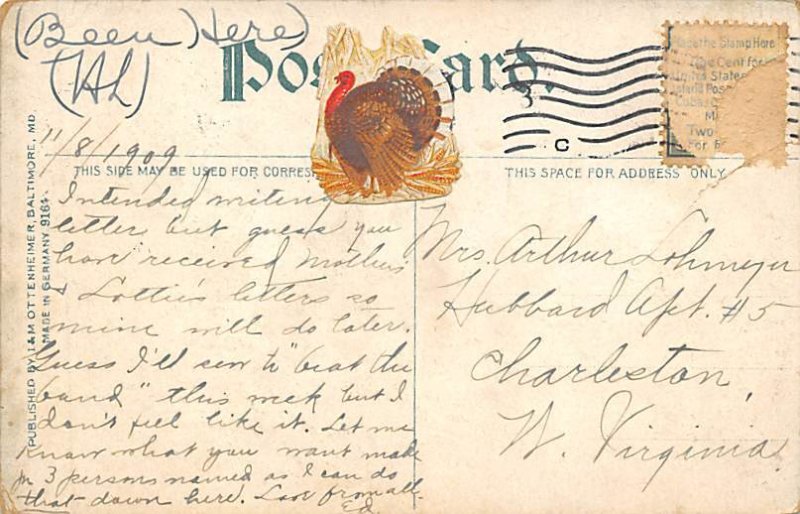 (Been) Here)
(HL)
Post Card.
11/8/1909
THIS SIDE MAY BE USED FOR CORRES
THIS SPACE FOR ADDRESS ONLY
Place the Stamp Here
One Cent for
United States
Island Poss
Cuba
Two
For
C
Intended writing
letter but guess you
have received Mother's
& Lottie's letters so
mine will do later.
Guess I'll sew to "beat the
band" this week but I
don't feel like it. Let me
know what you want made
in 3 persons named as I can do
that down here. Love from all
Ed.
Mrs. Arthur Lohmeyer
Hubbard Apt. #5
Charleston,
W. Virginia.
PUBLISHED BY I & M OTTENHEIMER, BALTIMORE, MD.
MADE IN GERMANY 9164